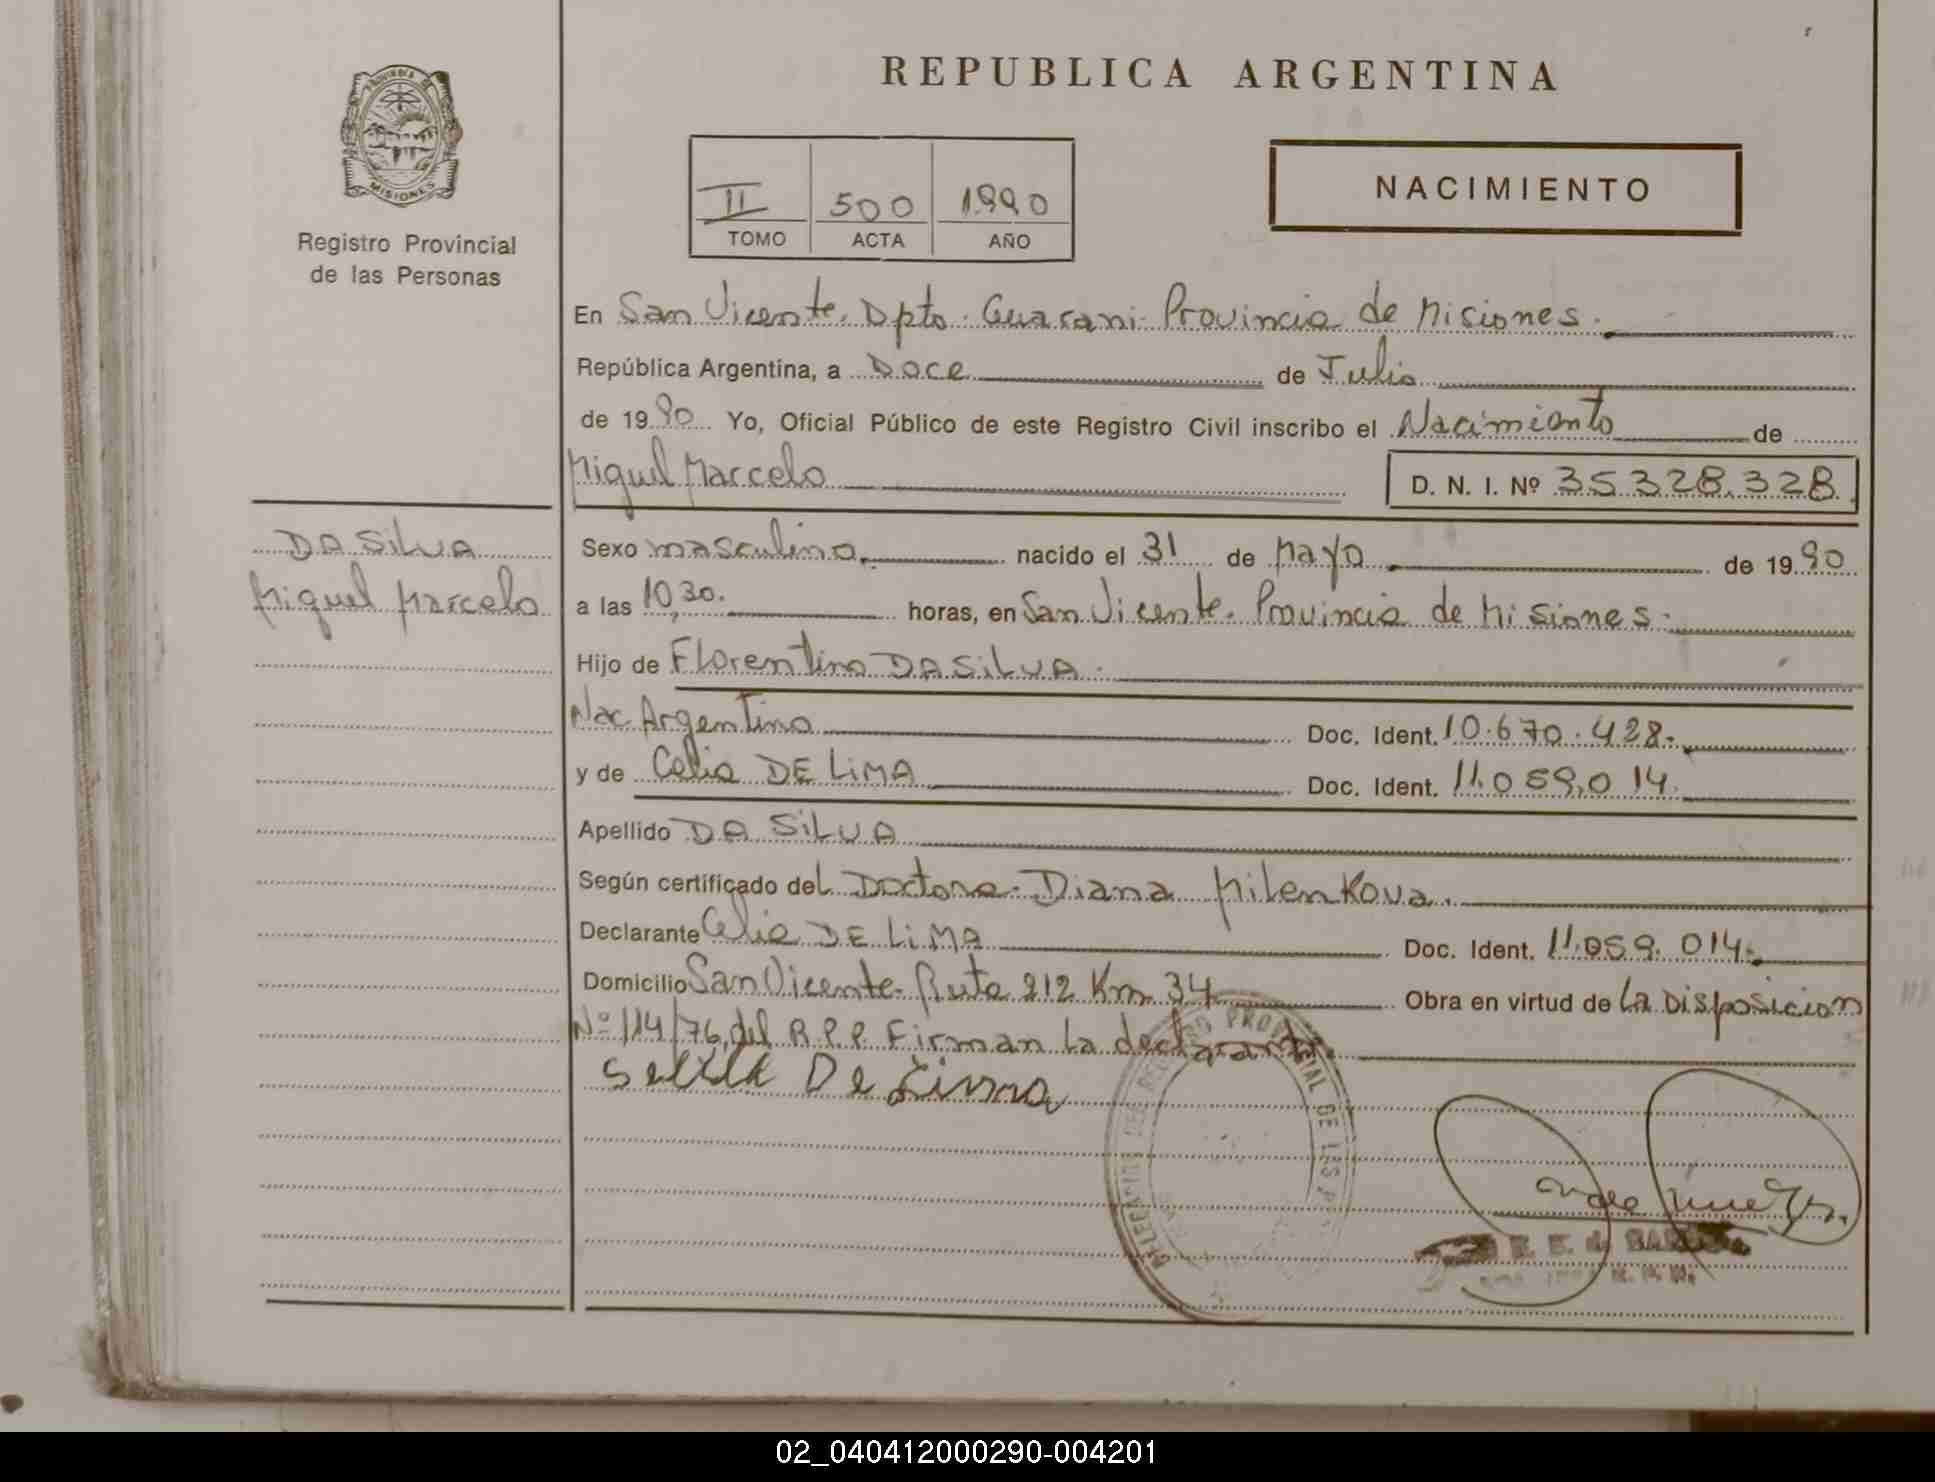 REPUBLICA ARGENTINA
PROVINCIA DE
MISIONES
Registro Provincial
de las Personas
II 500 1990
TOMO ACTA AÑO
NACIMIENTO
En San Vicente. Dpto. Guarani Provincia de Misiones.
República Argentina, a Doce de Julio
de 1990 Yo, Oficial Público de este Registro Civil inscribo el Nacimiento de
Miguel Marcelo D. N. I. Nº 35.328.328
DA SILVA
Miguel Marcelo
Sexo masculino nacido el 31 de Mayo de 1990
a las 10,30. horas, en San Vicente. Provincia de Misiones.
Hijo de Florentino DA SILVA.
Nac. Argentino Doc. Ident. 10.670.428.
y de Celia DE LIMA Doc. Ident. 11.059.014.
Apellido DA SILVA
Según certificado del Doctora. Diana Milenkova.
Declarante Celia DE LIMA Doc. Ident. 11.059.014.
Domicilio San Vicente. Ruta 212 Km 34 Obra en virtud de La Disposicion
Nº 114/76, del R.P.P. Firman La declarante.
De Lima
PROVINCIAL DE LAS
02_040412000290-004201